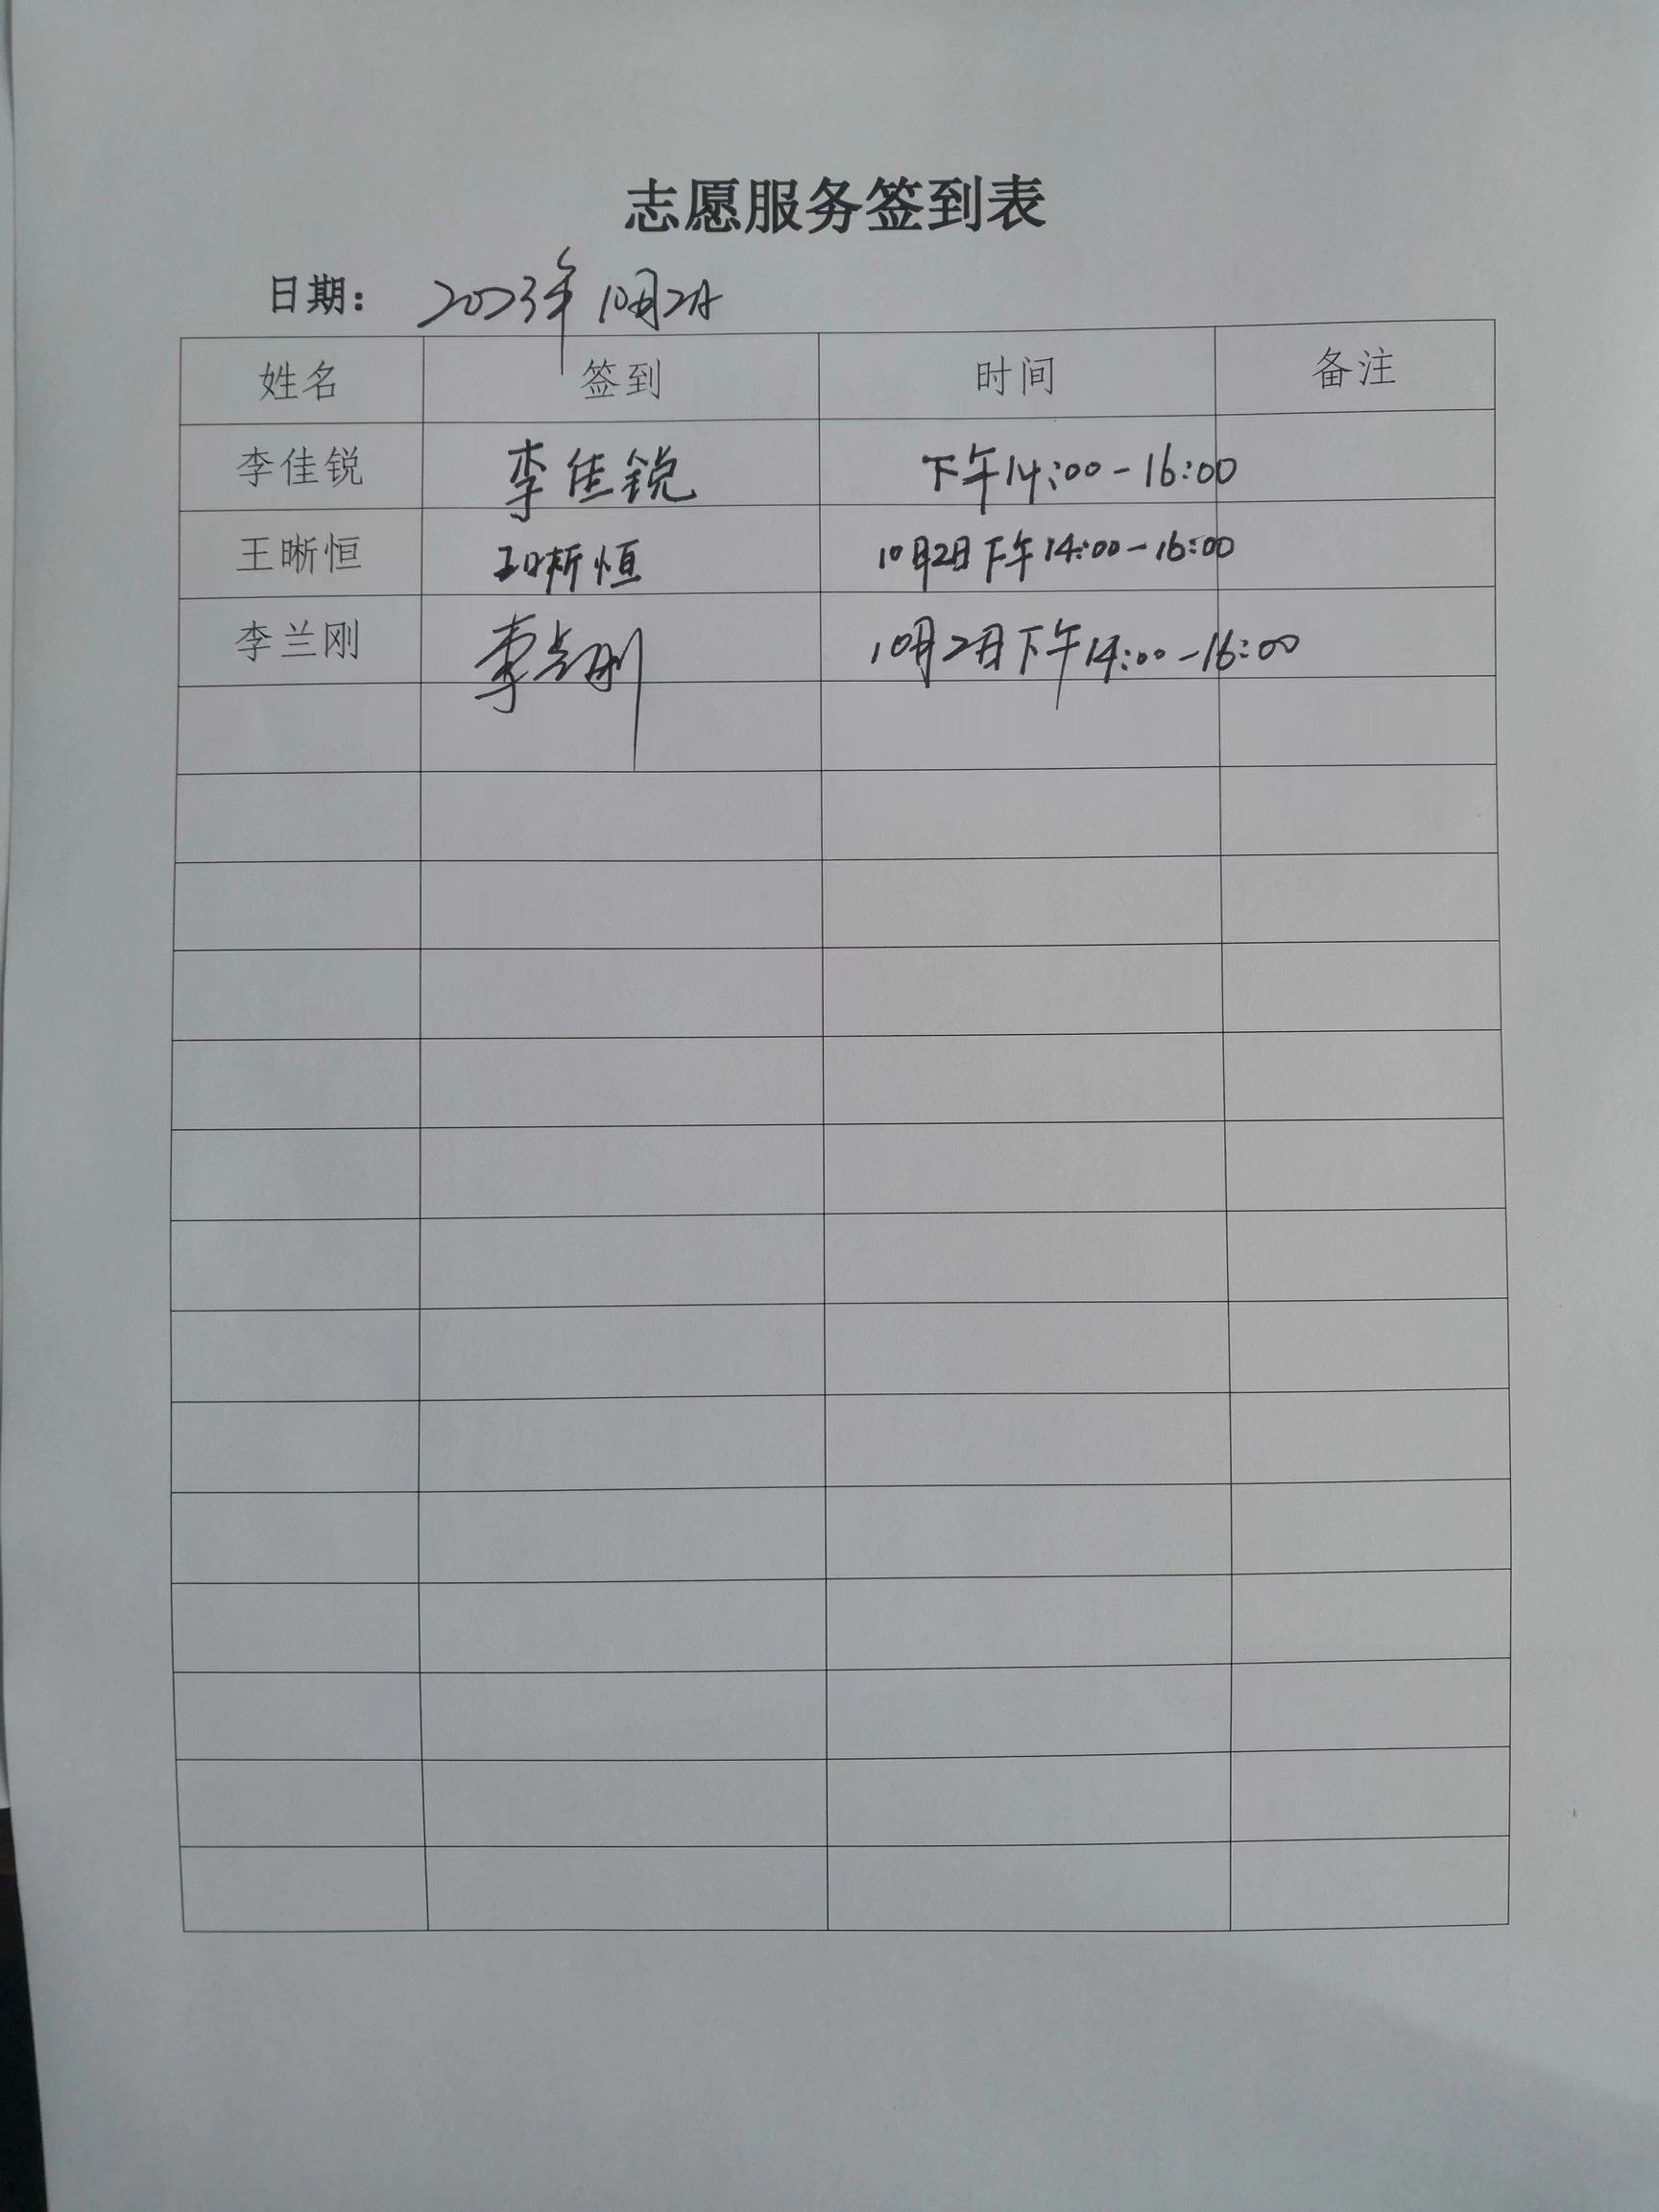 志愿服务签到表
日期： 2023年10月2日
姓名 签到 时间 备注
李佳锐 李佳锐 下午14:00-16:00
王晰恒 王晰恒 10月2日下午14:00-16:00
李兰刚 李兰刚 10月2日下午14:00-16:00